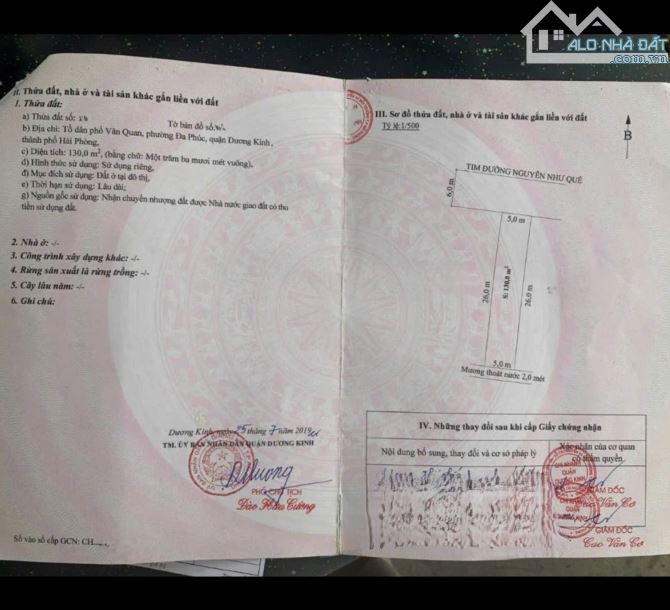 ALO NHÀ ĐẤT
.com.vn
II. Thửa đất, nhà ở và tài sản khác gắn liền với đất
1. Thửa đất:
a) Thửa đất số: Tờ bản đồ số:
b) Địa chỉ: Tổ dân phố Vân Quan, phường Đa Phúc, quận Dương Kinh,
thành phố Hải Phòng,
c) Diện tích: 130,0 m², (bằng chữ: Một trăm ba mươi mét vuông).
d) Hình thức sử dụng: Sử dụng riêng,
đ) Mục đích sử dụng: Đất ở tại đô thị,
e) Thời hạn sử dụng: Lâu dài;
g) Nguồn gốc sử dụng: Nhận chuyển nhượng đất được Nhà nước giao đất có thu
tiền sử dụng đất.
2. Nhà ở: -/-
3. Công trình xây dựng khác: -/-
4. Rừng sản xuất là rừng trồng: -/-
5. Cây lâu năm: -/-
6. Ghi chú:
Dương Kinh, ngày 25 tháng 7 năm 2019
TM. ỦY BAN NHÂN DÂN QUẬN DƯƠNG KINH
PHÓ CHỦ TỊCH
Đào Hữu Cường
Số vào sổ cấp GCN: CH
III. Sơ đồ thửa đất, nhà ở và tài sản khác gắn liền với đất
Tỷ lệ:1/500
B
TIM ĐƯỜNG NGUYỄN NHƯ QUẾ
6,0 m
5,0 m
26,0 m
S: 130,0 m²
26,0 m
5,0 m
Mương thoát nước 2,0 mét
IV. Những thay đổi sau khi cấp Giấy chứng nhận
Nội dung bổ sung, thay đổi và cơ sở pháp lý
Xác nhận của cơ quan
có thẩm quyền
CHI NHÁNH
QUẬN
DƯƠNG KINH
GIÁM ĐỐC
Cao Văn Cơ
GIÁM ĐỐC
Cao Văn Cơ